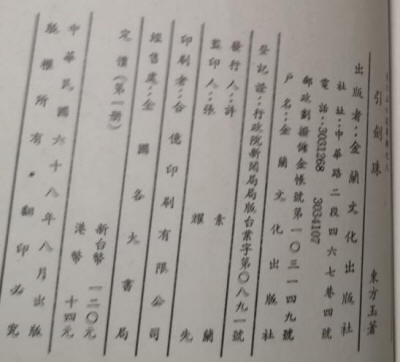 引劍珠　東方玉著
出版者：金蘭文化出版社
社址：中華路二段四六七巷四號
電話：3031268　3034107
郵政劃撥儲金帳號第一〇三一四九號
戶名：金蘭文化出版社
登記證：行政院新聞局局版台業字第〇八九一號
發行人：許素蘭
監印人：張耀先
印刷者：合億印刷有限公司
經售處：全國各大書局
定價（第一冊）
新台幣一二〇元
港幣十四元
中華民國六十八年八月出版
版權所有・翻印必究